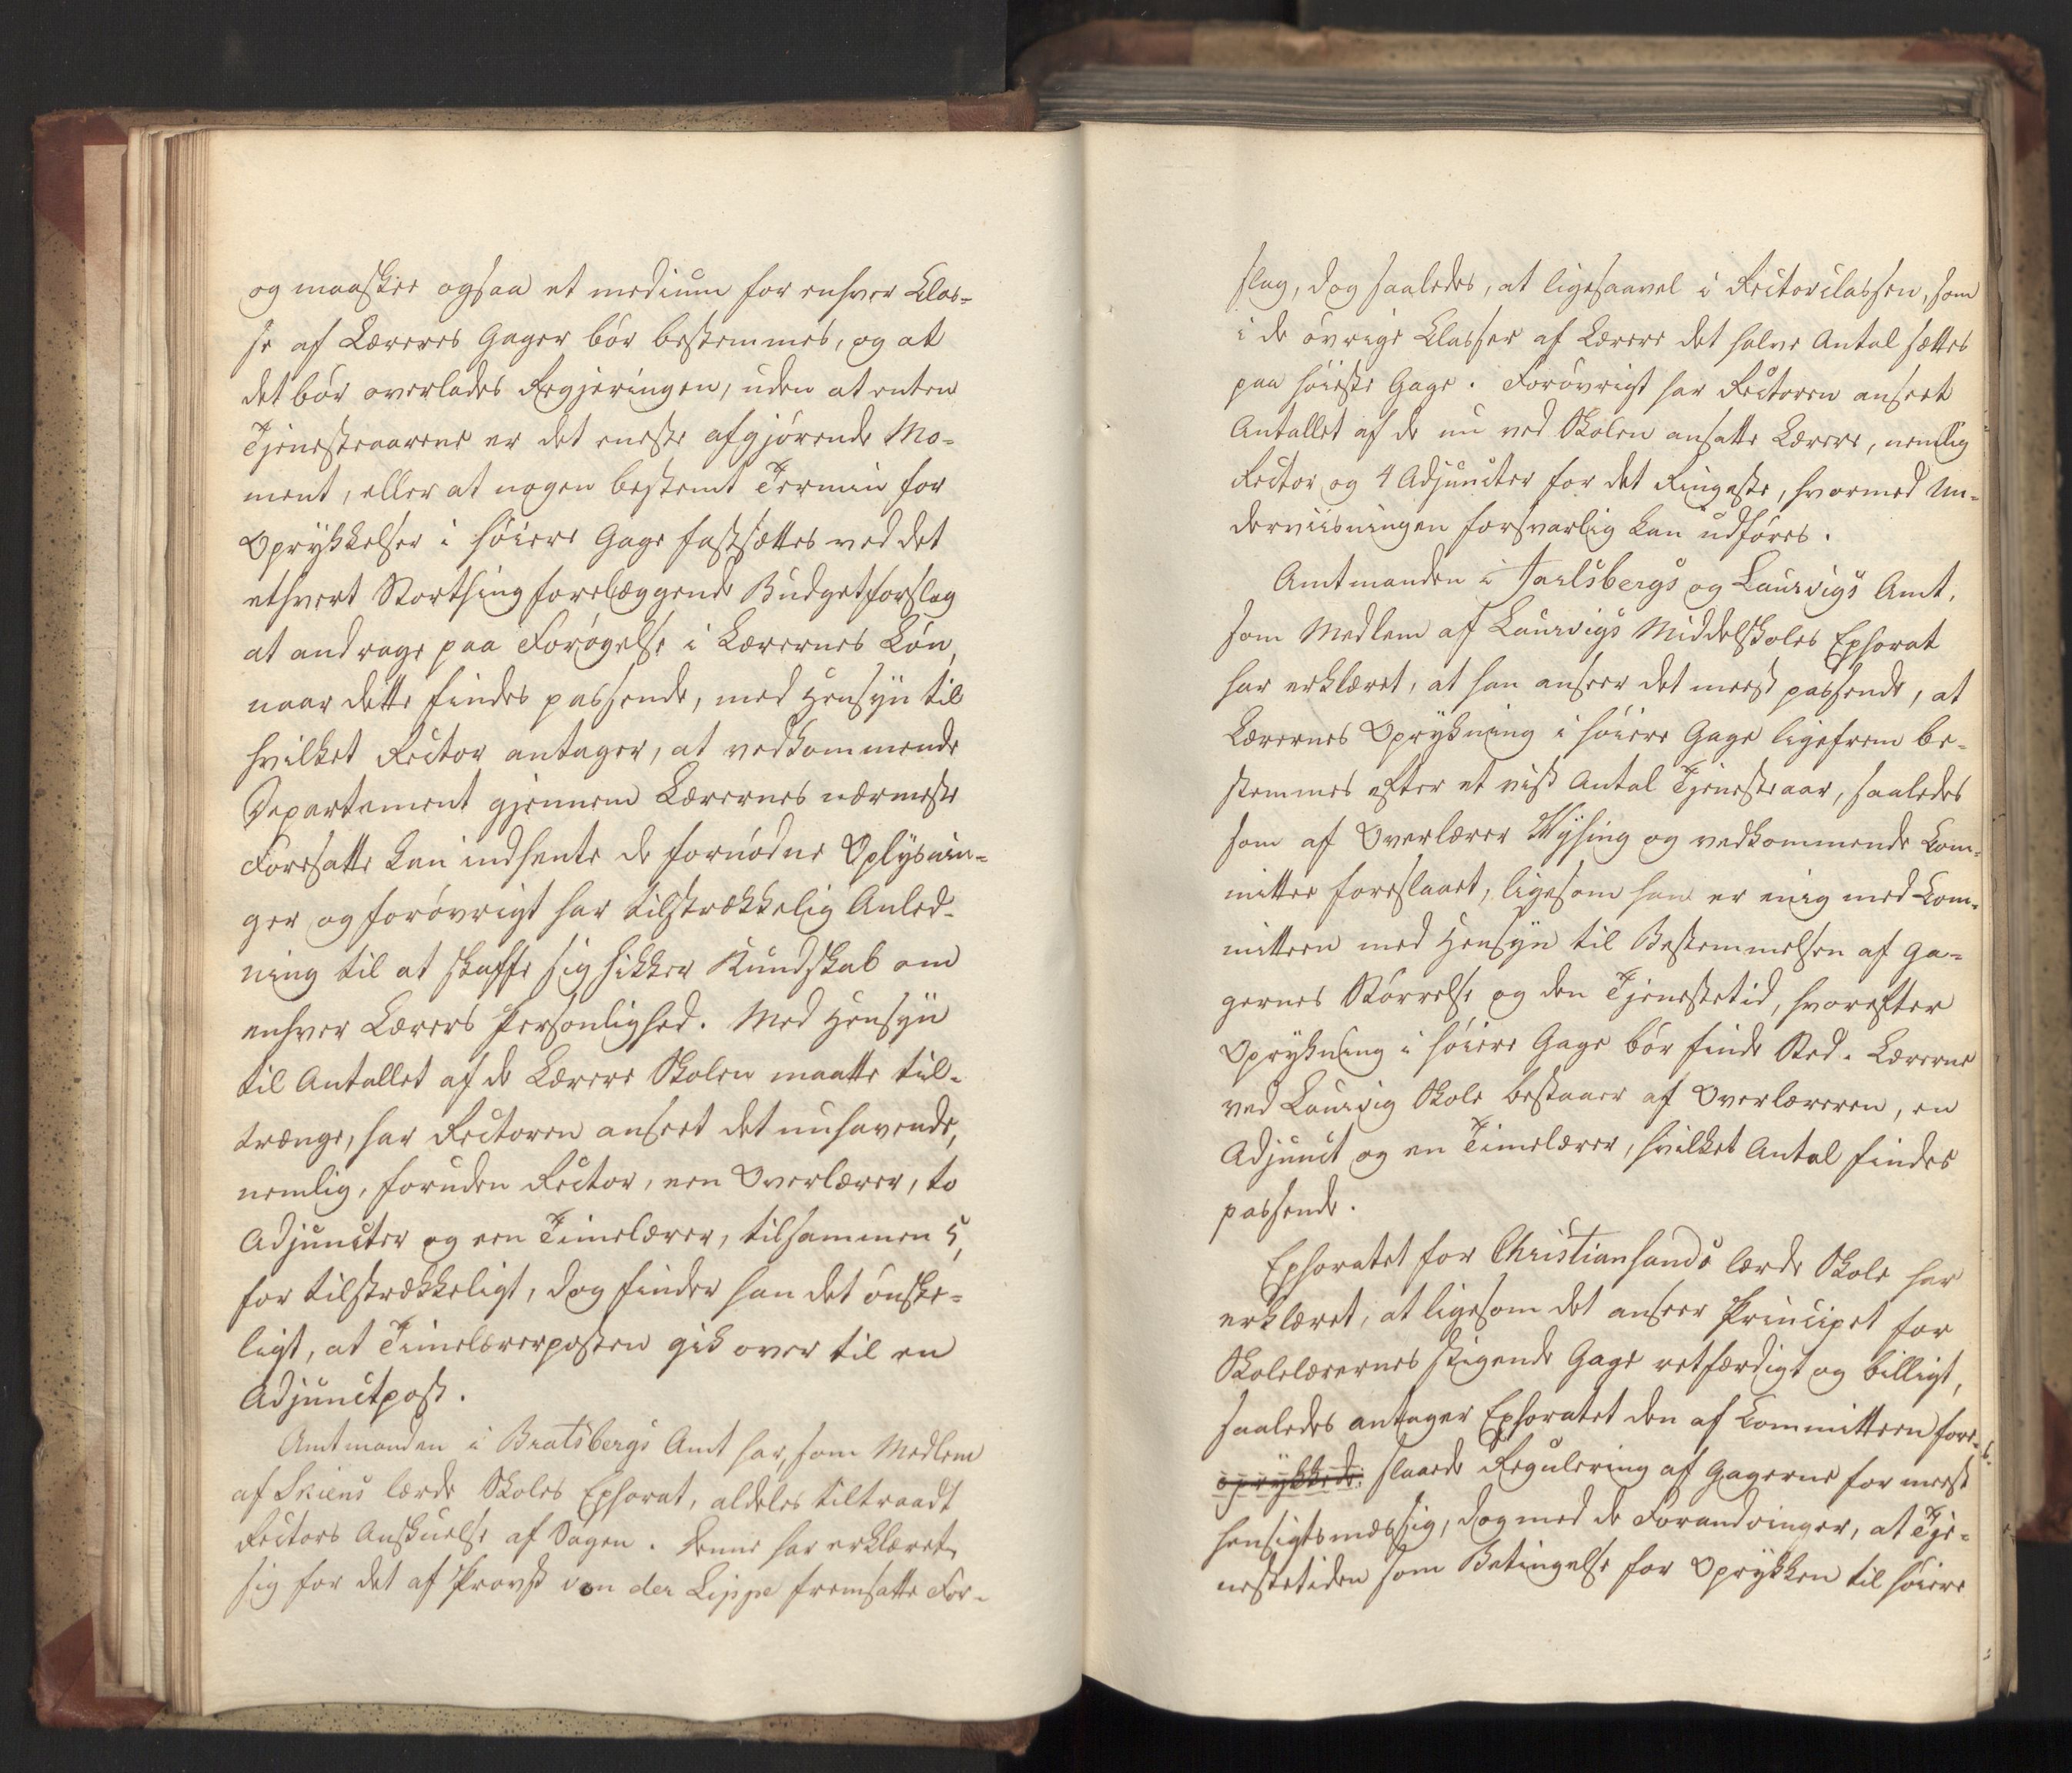 og maaskee ogsaa et medium for enhver Clas-
se af Læreres Gager bør bestemmes, og at
det bør overlades Regjeringen, uden at enten
Tjenesteaarene er det eneste afgjørende Mo-
ment, eller at nogen bestemt Termin for
Oprykkelser i høiere Gage fastsættes ved det
ethvert Storthing forelæggende Budgetforslag
at andrage paa Forøgelse i Lærernes Løn,
naar dette findes passende, med Hensyn til
hvilket Rector antager, at vedkommende
Departement gjennem Lærernes nærmeste
Foresatte kan indhente de fornødne Oplysnin-
ger og forøvrigt har tilstrækkelig Anled-
ning til at skaffe sig sikker Kundskab om
enhver Lærers Personlighed. Med Hensyn
til Antallet af de Lærere Skolen maatte til-
trænge, har Rectoren anseet det nuhavende,
nemlig, foruden Rector, een Overlærer, to
Adjuncter og een Timelærer, tilsammen 5,
for tilstrækkeligt, dog finder han det ønske-
ligt, at Timelærerposten gik over til en
Adjunctpost.
Amtmanden i Bratsbergs Amt har, som Medlem
af Skiens lærde Skoles Ephorat, aldeles tiltraadt
Rectors Anskuelse af Sagen. Denne har erklæret
sig for det af Provst von der Lippe fremsatte For-
slag, dog saaledes, at ligesaavel i Rectorclassen, som
i de øvrige Classer af Lærere det halve Antal sættes
paa høieste Gage. Forøvrigt har Rectoren anseet
Antallet af de nu ved Skolen ansatte Lærere, nemlig
Rector og 4 Adjuncter for det Ringeste, hvormed Un-
derviisningen forsvarlig kan udføres.
Amtmanden i Jarlsbergs og Laurvigs Amt,
som Medlem af Laurvigs Middelskoles Ephorat
har erklæret, at han anseer det meest passende, at
Lærernes Oprykning i høiere Gage ligefrem be-
stemmes efter et vist Antal Tjenesteaar, saaledes
som af Overlærer Mysing og vedkommende Com-
mittee foreslaaet, ligesom han er enig med Com-
mitteen med Hensyn til Bestemmelsen af Ga-
gernes Størrelse og den Tjenestetid, hvorefter
Oprykning i høiere Gage bør finde Sted. Lærerne
ved Laurvig Skole bestaaer af Overlæreren, en
Adjunct og en Timelærer, hvilket Antal findes
passende.
Ephoratet for Christiansands lærde Skole har
erklæret, at ligesom det anseer Principet for
Skolelærernes stigende Gage retfærdigt og billigt,
saaledes antager Ephoratet den af Committeen fore-
oprykkede slaaede Regulering af Gagerne for meest
hensigtsmæssig, dog med de Forandringer, at Tje-
nestetiden som Betingelse for Oprykken til høiere